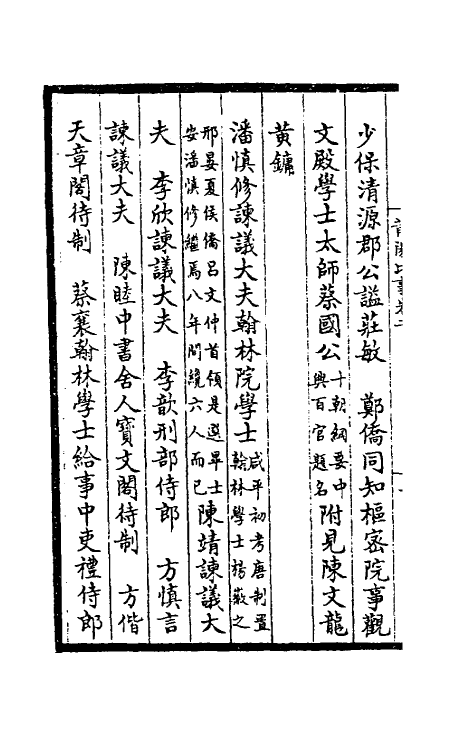 少保清源郡公諡莊敏　鄭僑同知樞密院事觀
文殿學士太師蔡國公十朝綱要中興百官題名附見陳文龍
黃鏞
潘慎修諫議大夫翰林院學士咸平初考唐制置翰林學士楊徽之
邢昺夏侯僑呂文仲首領是選畢士安潘慎修繼焉八年間纔六人而已陳靖諫議大
夫　李欣諫議大夫　李歆刑部侍郎　方慎言
諫議大夫　陳睦中書舍人寶文閣待制　方偕
天章閣待制　蔡襄翰林學士給事中吏禮侍郎